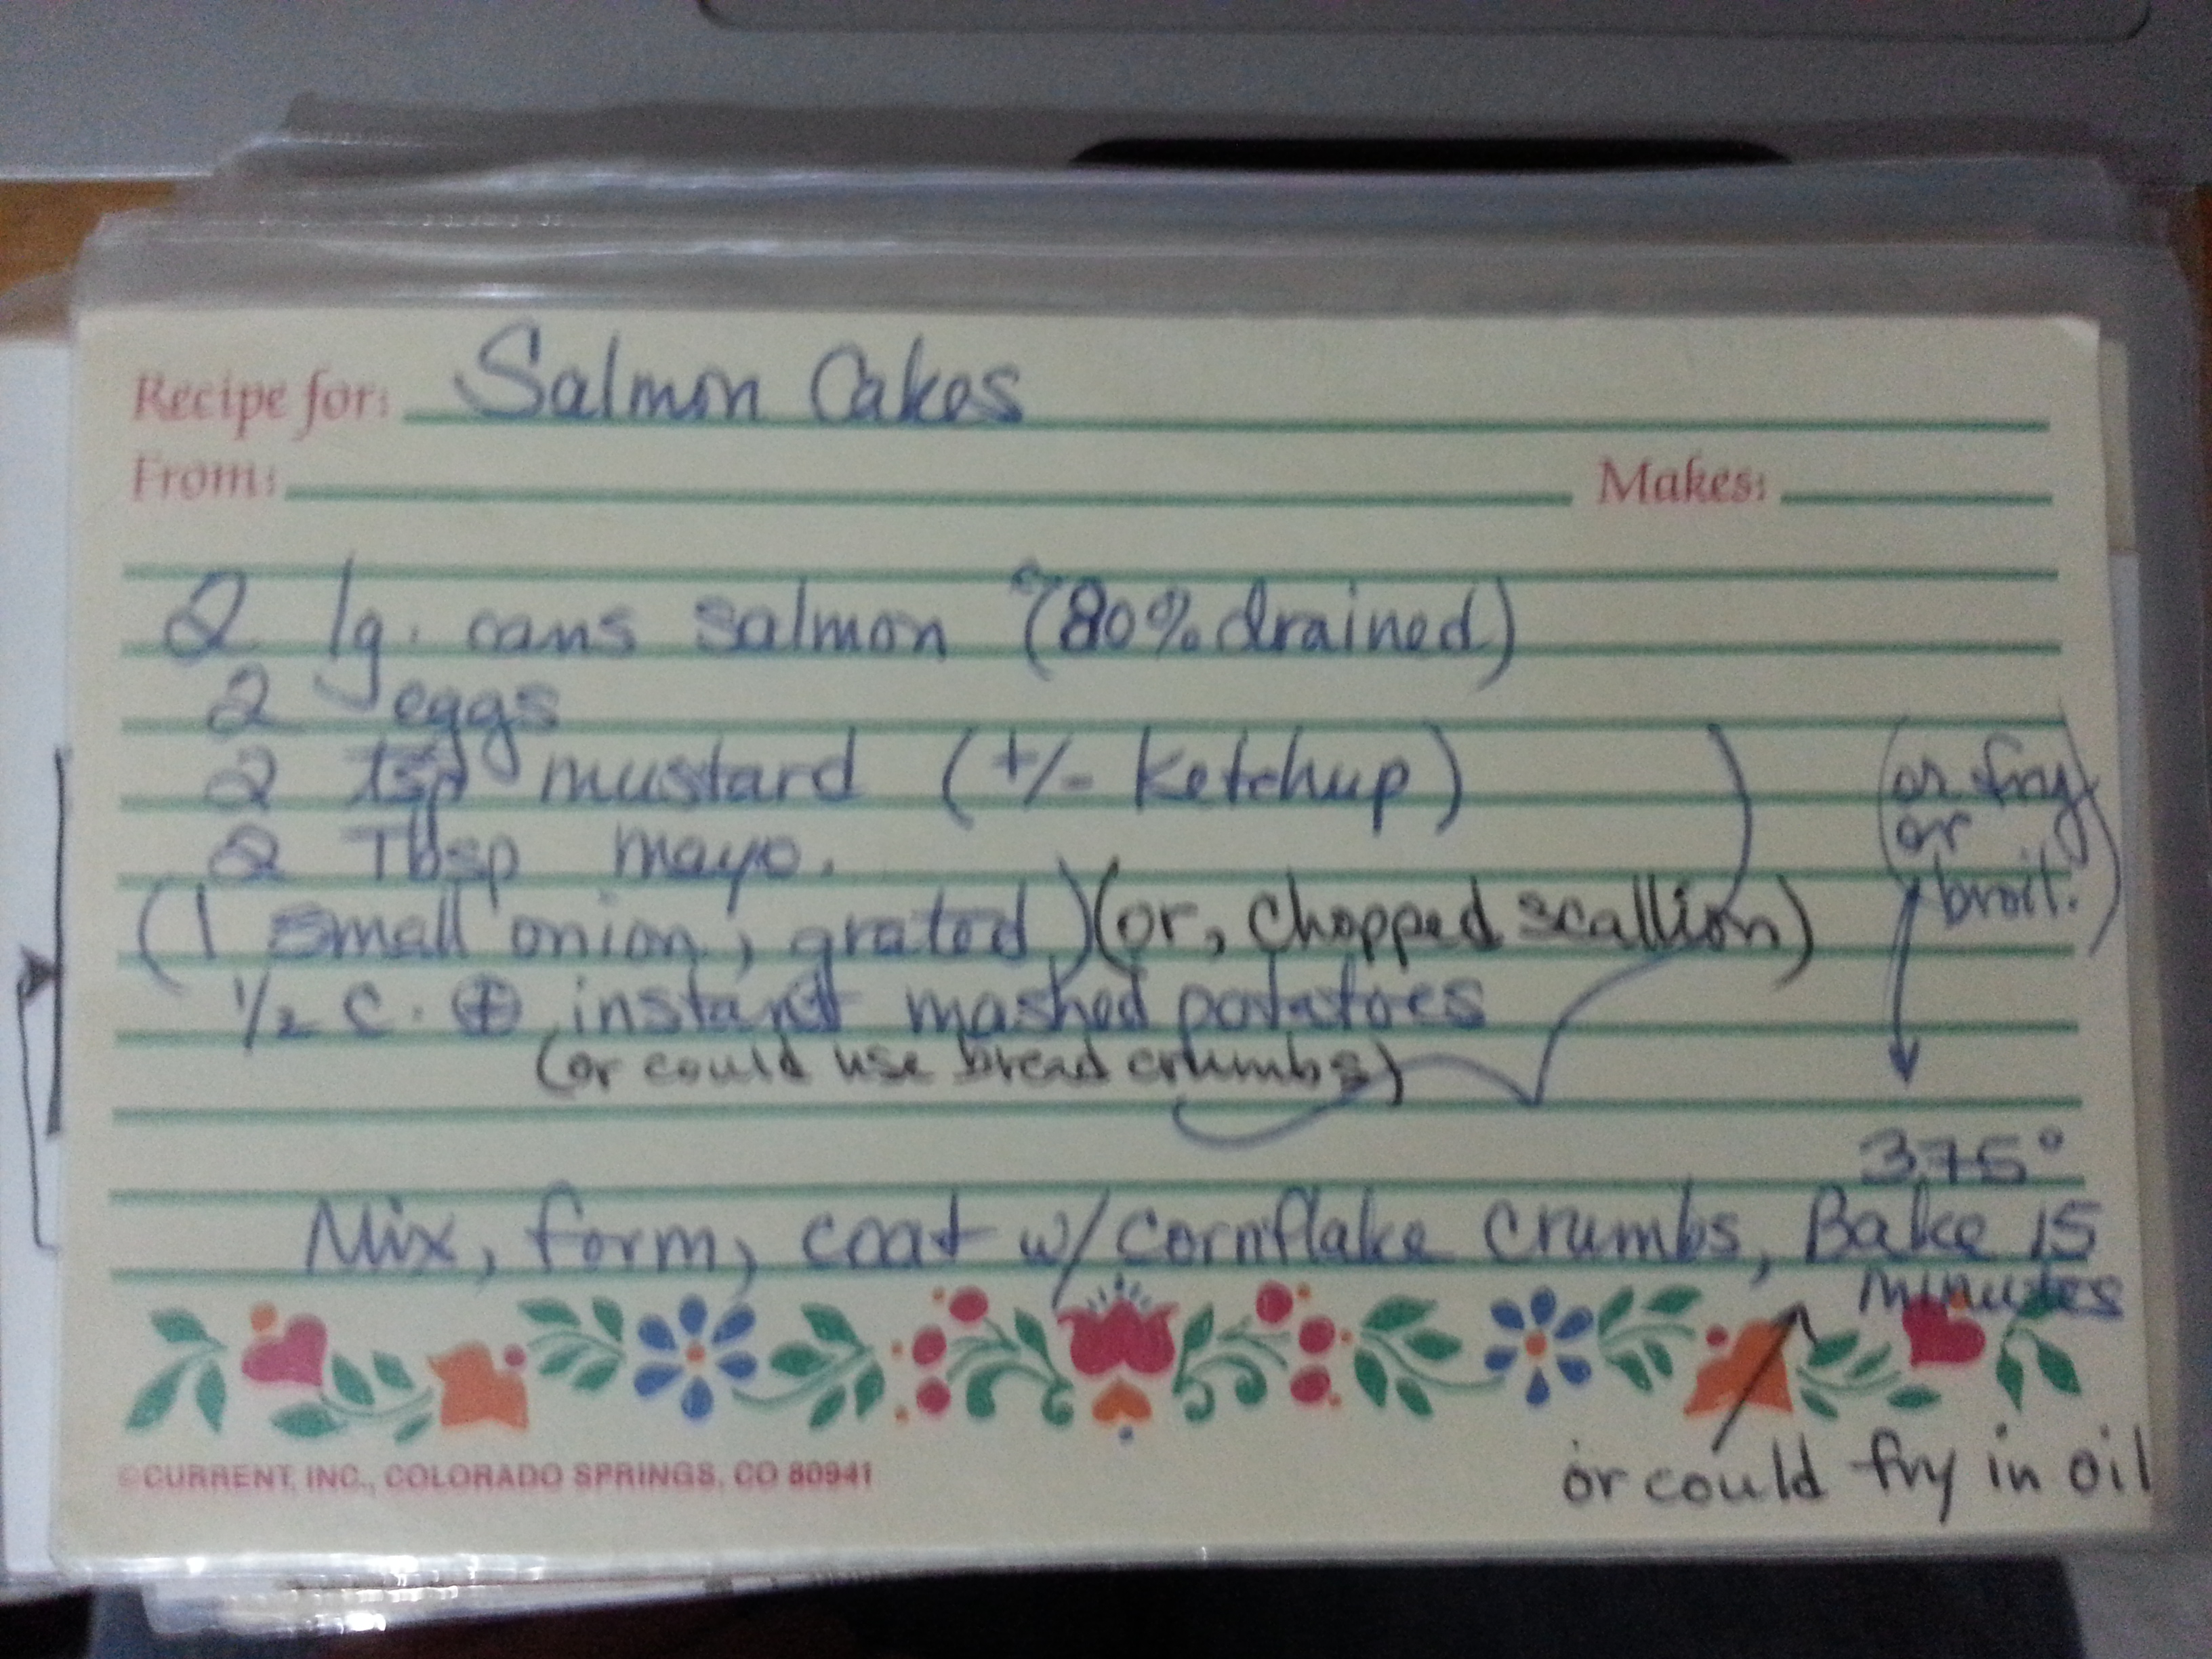 Recipe for: Salmon Cakes
From: Makes:
2 lg. cans salmon ~(80% drained)
2 eggs
2 tsp mustard (+/- ketchup)
2 Tbsp mayo.
(1 small onion, grated) (or, chopped scallion)
1/2 c. ⊕ instant mashed potatoes
(or could use bread crumbs)
(or fry
or
broil.)
375°
Mix, form, coat w/ cornflake crumbs, Bake 15
minutes
or could fry in oil
©CURRENT, INC., COLORADO SPRINGS, CO 80941